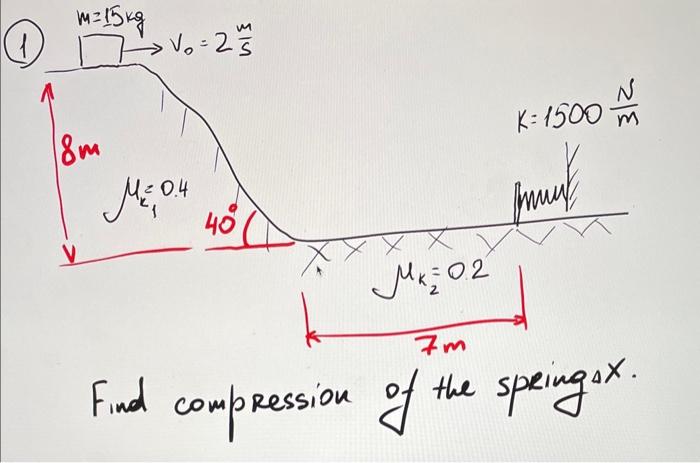 1
m=15kg
V₀ = 2 m/s
K=1500 N/m
8m
μₖ₁=0.4
40°
μₖ₂=0.2
7m
Find compression of the spring Δx.